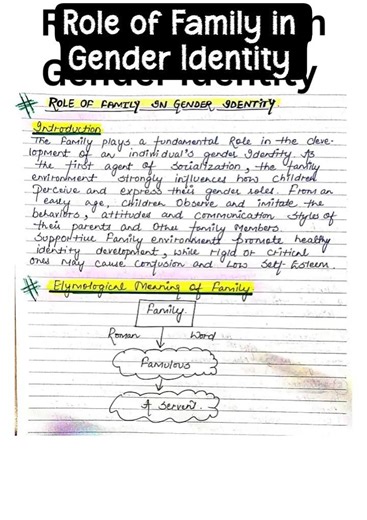 Role of Family in
Gender Identity
# ROLE OF FAMILY IN GENDER IDENTITY.
Introduction
The Family plays a fundamental Role in the deve-
lopment of an individual's gender Identity. As
the first agent of Socialization, the family
environment strongly influences how children
Perceive and express their gender roles. From an
early age, Children Observe and imitate the
behaviors, attitudes and communication styles of
their parents and Other family Members.
Supportive Family environments promote healthy
identity development, while rigid or critical
ones may cause confusion and Low Self-Esteem.
# Etymological Meaning of Family.
Family.
Roman Word
Famulous
A Servent.